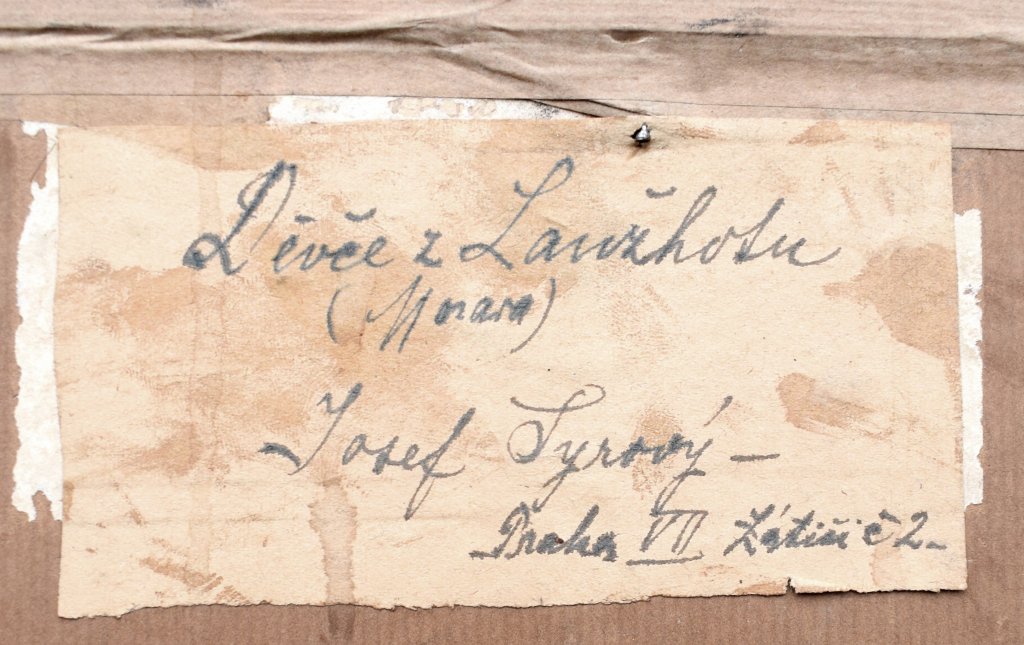 Děvče z Lanžhotu
(Morava)
Josef Syrový –
Praha VII Zátiší č 2.